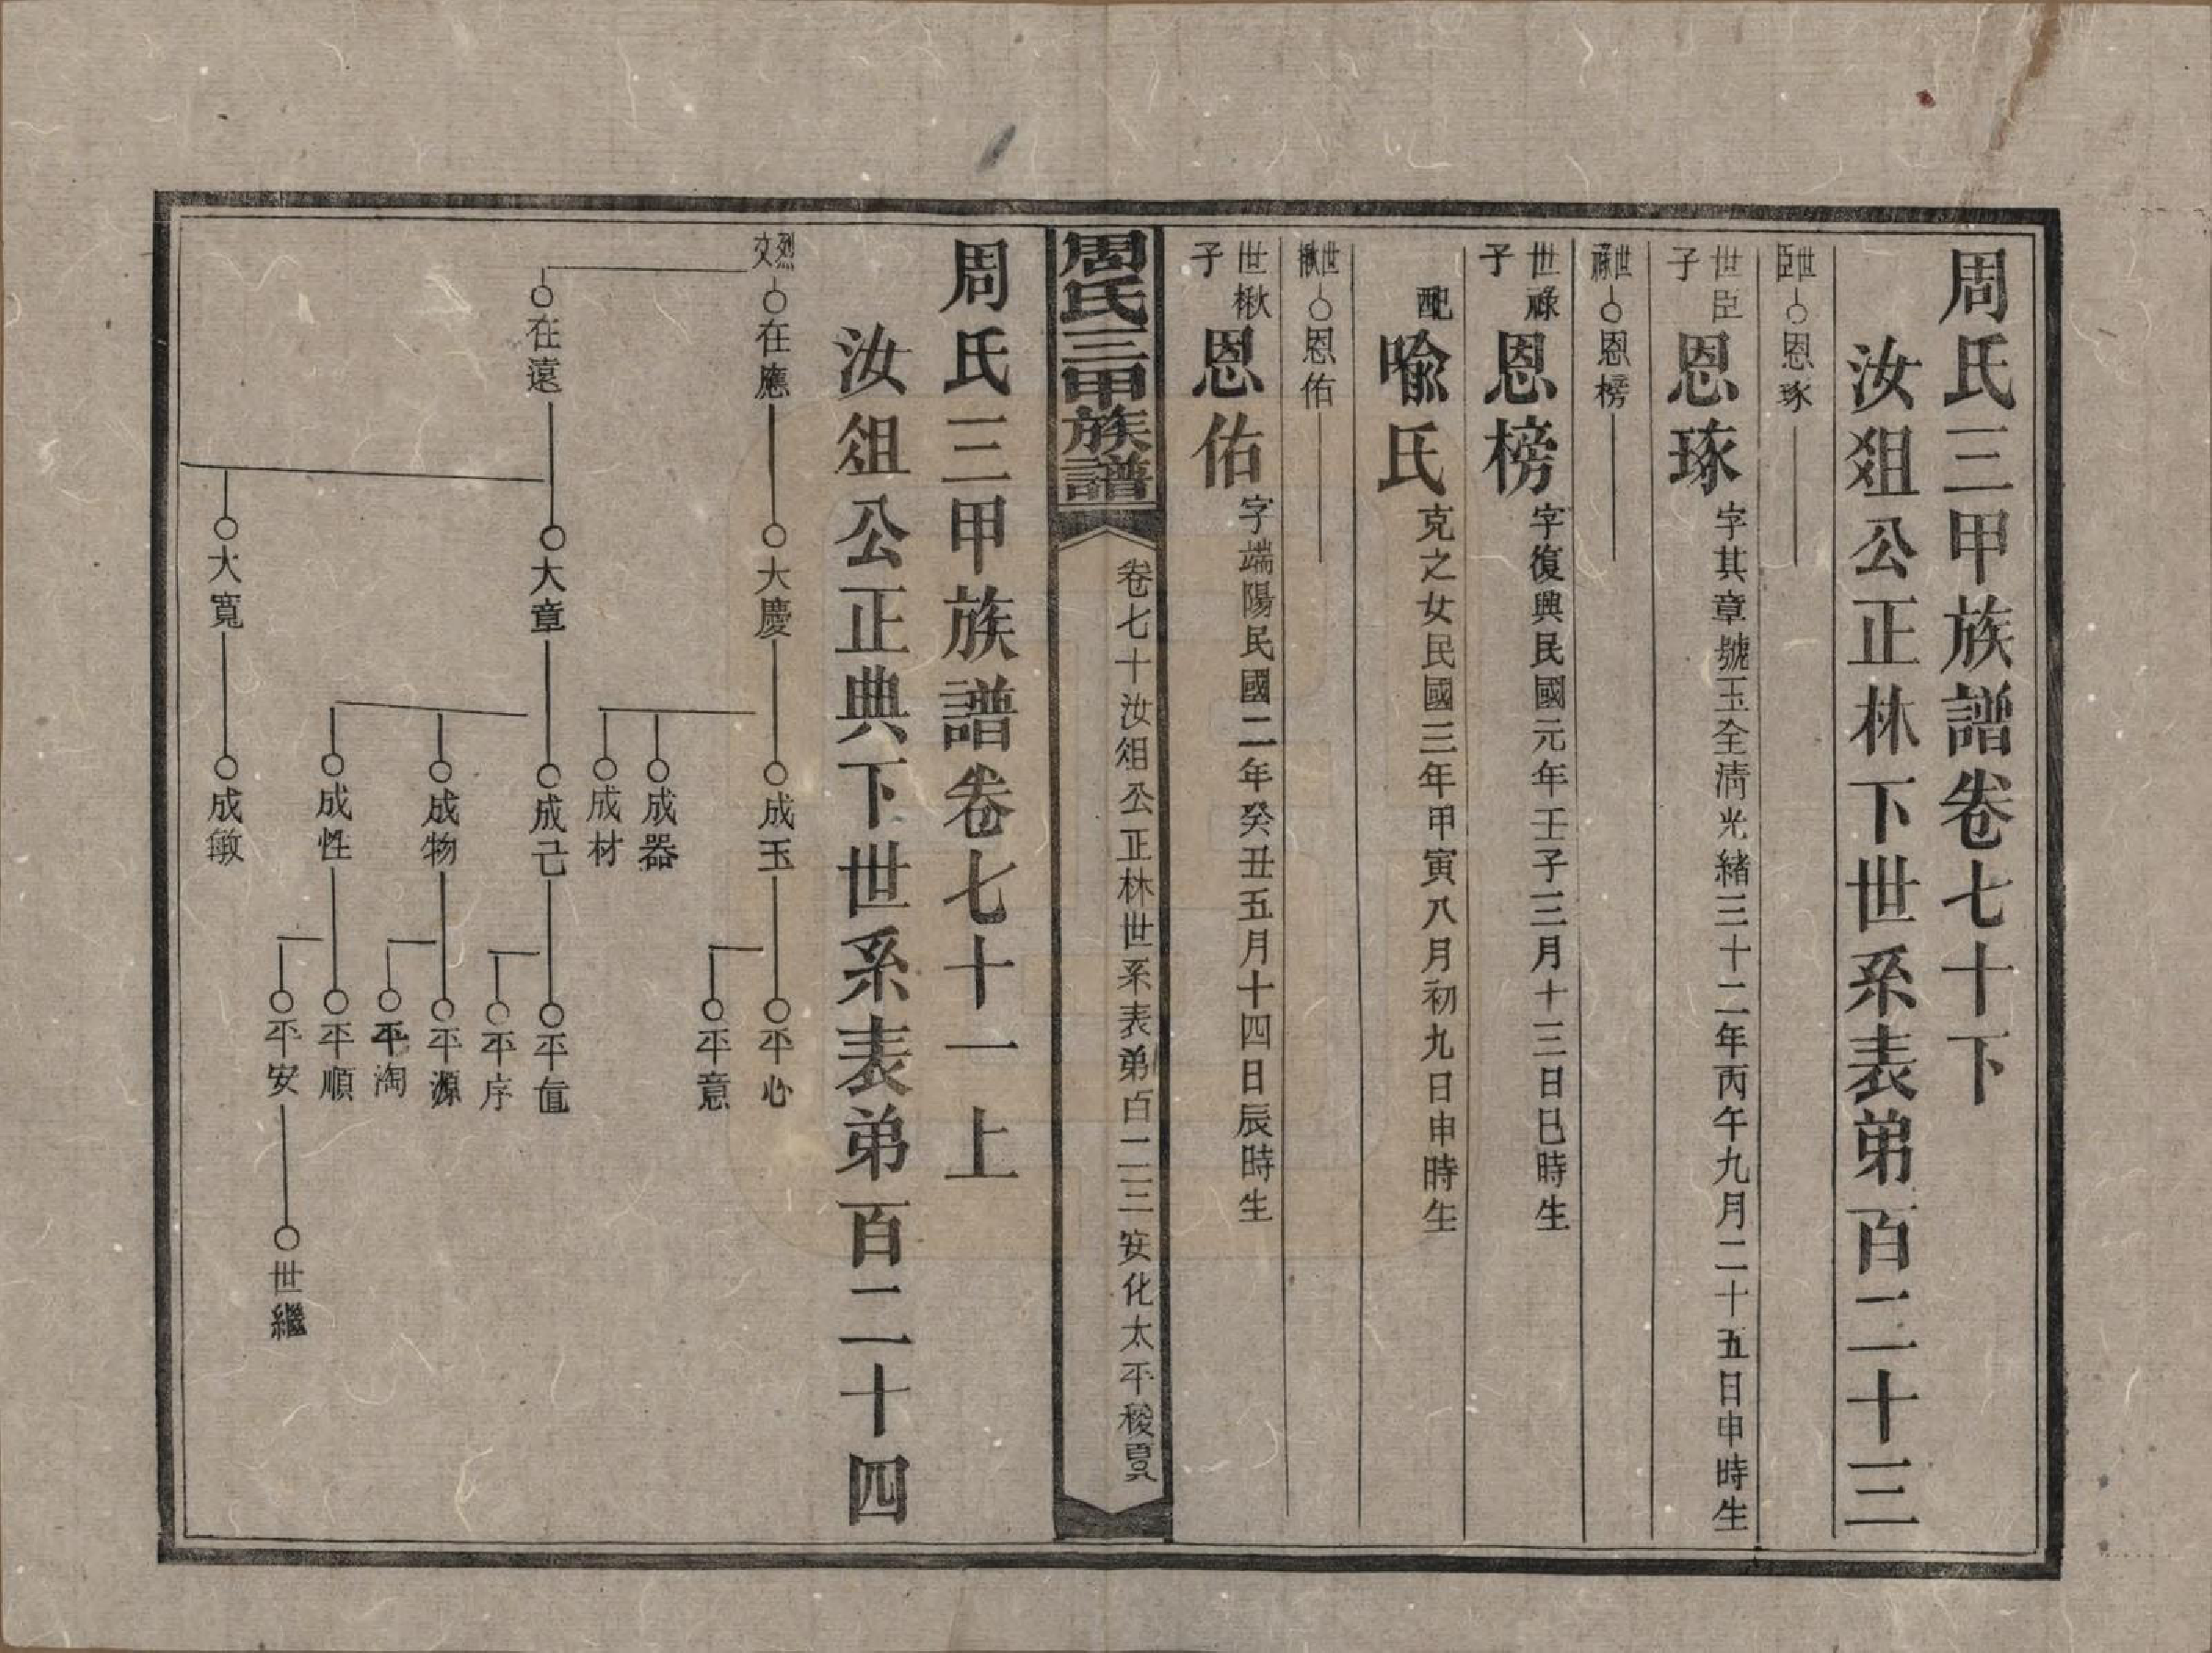 周氏三甲族譜卷七十下
汝俎公正林下世系表弟百二十三
世臣 恩琢
世臣子 恩琢 字其章號玉全淸光緒三十二年丙午九月二十五日申時生
世祿 恩榜
世祿子 恩榜 字復興民國元年壬子三月十三日巳時生
配 喩氏 克之女民國三年甲寅八月初九日申時生
世楸 恩佑
世楸子 恩佑 字端陽民國二年癸丑五月十四日辰時生
周氏三甲族譜
卷七十汝俎公正林世系表弟百二三 安化太平稷
周氏三甲族譜卷七十一上
汝俎公正典下世系表弟百二十四
烈文 在應 大慶 成玉 平心
平意
成器
成材
在遠 大章 成己 平值
平序
成物 平源
平淘
成性 平順
平安 世繼
大寬 成敏